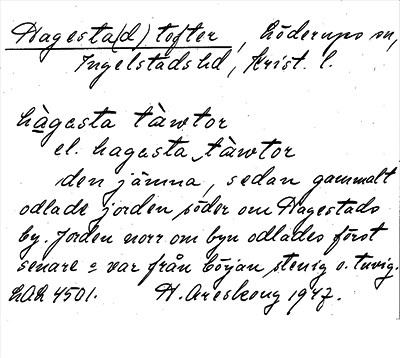 Hagesta(d) tofter, Löderups sn,
Ingelstads hd, Krist. l.
hàgesta tàwtor
el. hagesta tàwtor
den jämna, sedan gammalt
odlade jorden söder om Hagestads
by. Jorden norr om byn odlades först
senare o var från början stenig o. tuvig.
LAL 4501. H. Areskoug 1947.